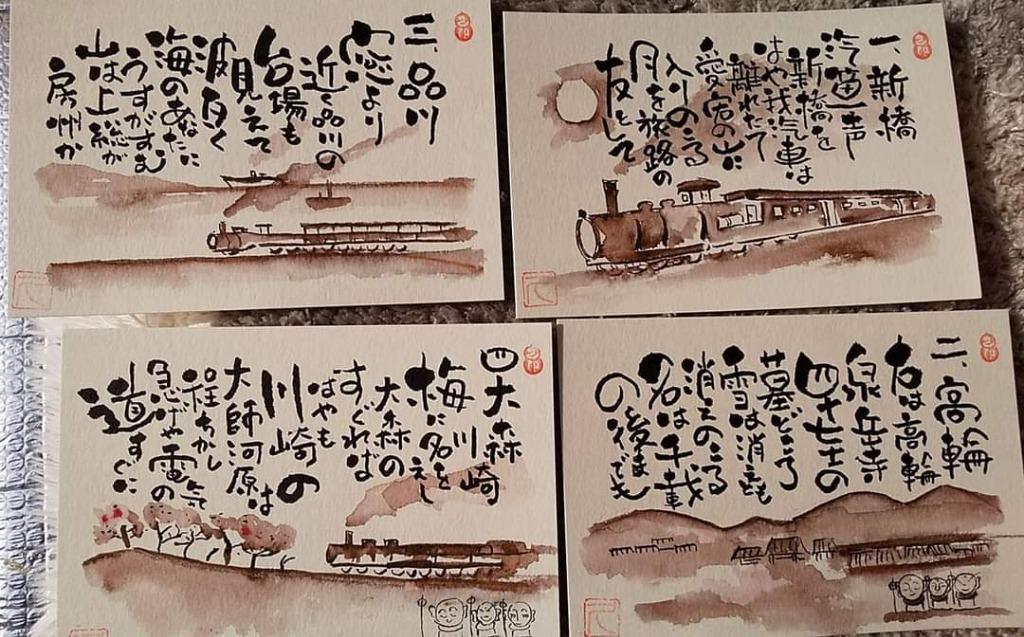 一、新橋
汽笛一声
新橋を
はや我汽車は
離れたて
愛宕の山に
入りのこる
月を旅路の
友として
二、高輪
右は高輪
泉岳寺
四十七士の
墓どころ
雪は消えても
消えのこる
名は千載
の後までも
三、品川
窓より
近く品川の
台場も
見えて
波白く
海のあなたに
うすがすむ
山は上総が
房州か
四 大森
川崎
梅に名をえし
大森の
すぐれば
はやも
川崎の
大師河原は
程ちかし
急げや電気の
道すぐに